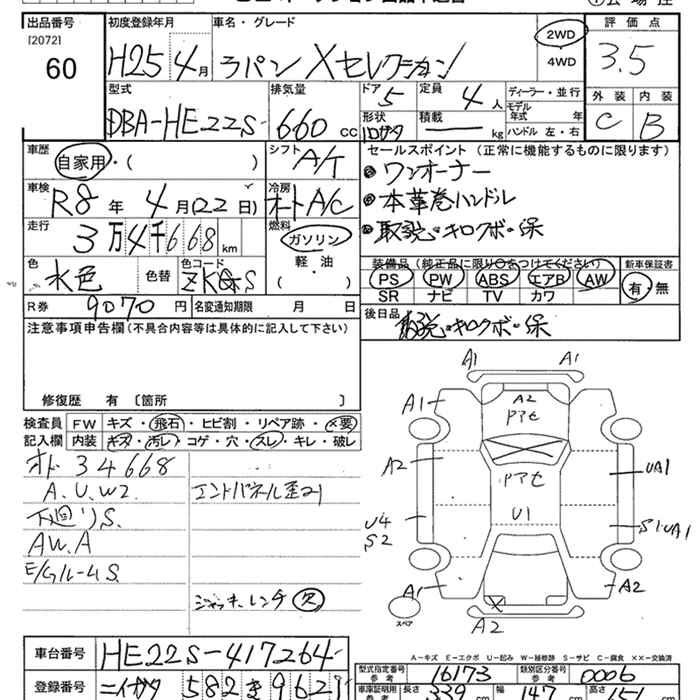 出品番号
[2072]
60
初度登録年月
H25 4月
車名・グレード
ラパン Xセレクション
2WD
4WD
評価点
3.5
型式
DBA-HE22S
排気量
660 cc
ドア
5
形状
定員
4 人
積載
kg
ディーラー・並行
モデル年式 年
ハンドル 左・右
外装 内装
C B
車歴
自家用・( )
シフト
A/T
車検
R8年 4月(22日)
冷房
オートA/C
走行
3万4千668 km
燃料
ガソリン
軽・油
( )
色
水色
色替
色コード
ZKGS
R券 9070円
名変通知期限 月 日
セールスポイント (正常に機能するものに限ります)
ワンオーナー
本革巻ハンドル
取説・キロクボ・保
装備品(純正品に限り○をつけてください)
PS PW ABS エアB AW
SR ナビ TV カワ
新車保証書
有・無
後日品
取説・キロクボ・保
注意事項申告欄(不具合内容等は具体的に記入して下さい)
修復歴 有〔箇所 〕
検査員記入欄
FW キズ・飛石・ヒビ割・リペア跡・×要
内装 キズ・汚レ・コゲ・穴・スレ・キレ・破レ
オド 34668
A.U.W2
下廻りS.
AW.A
E/GルームS
エンドパネル歪ミ1
ジャッキ・レンチ 欠
A1 A1
A1 A2
アアセ
A2
アアセ
UA1
U1
U4
S2
S1UA1
A1
A2
スペア
X
A2
A-キズ E-エクボ U-凹み W-補修跡 S-サビ C-腐食 ××-交換済
車台番号
HE22S-417264
登録番号
ニイガタ 582 き 962
型式指定番号 参考
16173
類別区分番号 参考
0006
車庫証明用 参考
長さ 339 cm
幅 147 cm
高さ 151